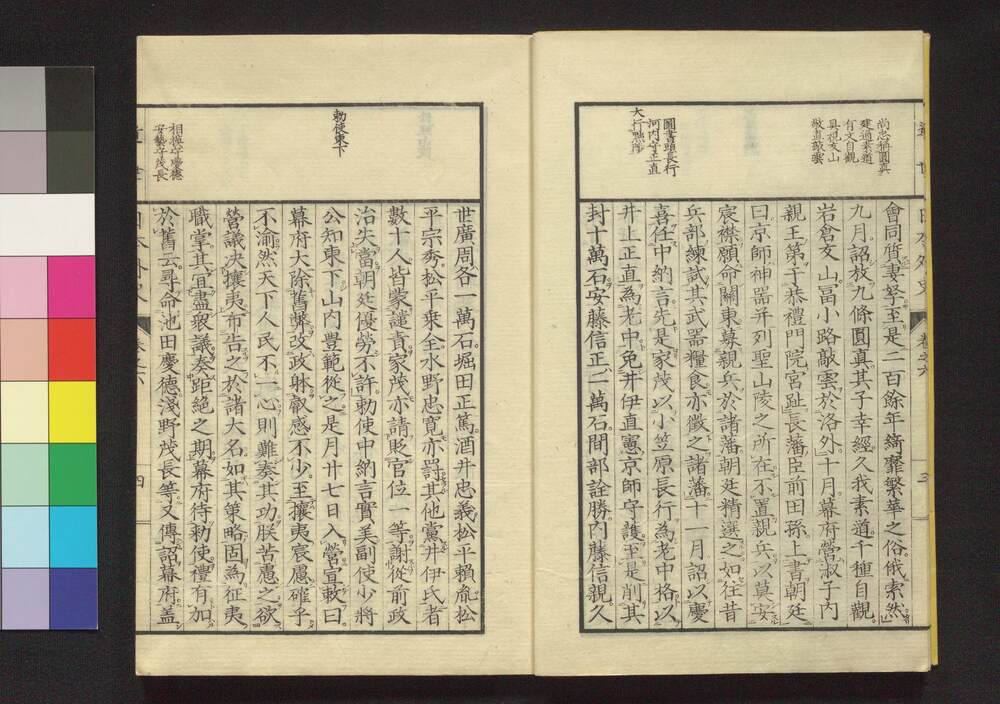 尚忠稱圓真
建通素道
有文自觀
具視友山
敬直敲雲
圖書頭長行
河内守正直
大行黜陟
會同質妻孥至是二百餘年綺靡繁華之俗俄索然
九月詔放九條圓真其子幸經久我素道千種自觀
岩倉友山冨小路敲雲於洛外十月幕府營淑子内
親王第于恭禮門院宮趾長藩臣前田孫上書朝廷
曰京師神器并列聖山陵之所在不置親兵以莫安
宸襟願命關東募親兵於諸藩朝廷精選之如往昔
兵部練試其武器糧食亦徵之諸藩十一月詔以慶
喜任中納言先是家茂以小笠原長行為老中格以
井上正直為老中免井伊直憲京師守護至是削其
封十萬石安藤信正二萬石間部詮勝内藤信親久
勅使東下
相摸守慶德
安藝守茂長
世廣周各一萬石堀田正篤酒井忠義松平賴胤松
平宗秀松平乗全水野忠寛亦罸其他黨井伊氏者
數十人皆蒙譴責家茂亦請貶官位一等謝從前政
治失當朝廷優勞不許勅使中納言實美副使少將
公知東下山内豐範從之是月廿七日入營宣敕曰
幕府大除舊弊改政躰叡感不少至攘夷宸慮確乎
不渝然天下人民不一心則難奏其功朕苦愚之欲
營議决攘夷布告之於諸大名如其策略固為征夷
職掌其宜盡衆議奏距絶之期幕府待勅使禮有加
於舊云尋命池田慶德淺野茂長等又傳詔幕府盖
四